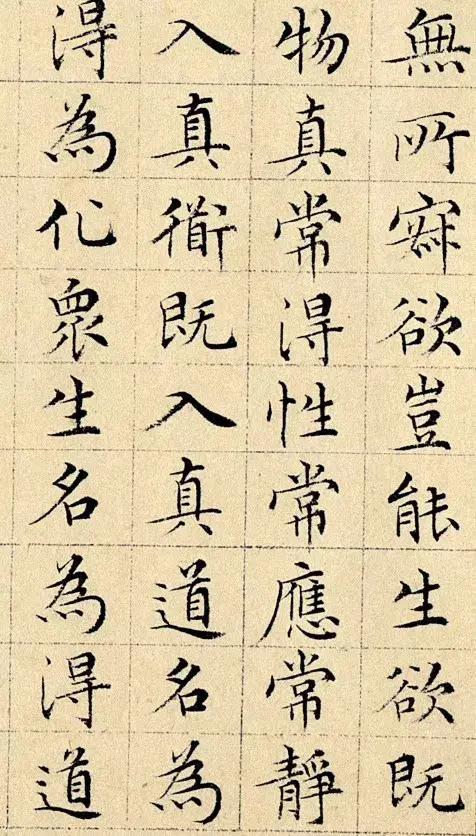 無所寂欲豈能生欲既
物真常得性常應常靜
入真衜既入真道名為
得為化眾生名為得道